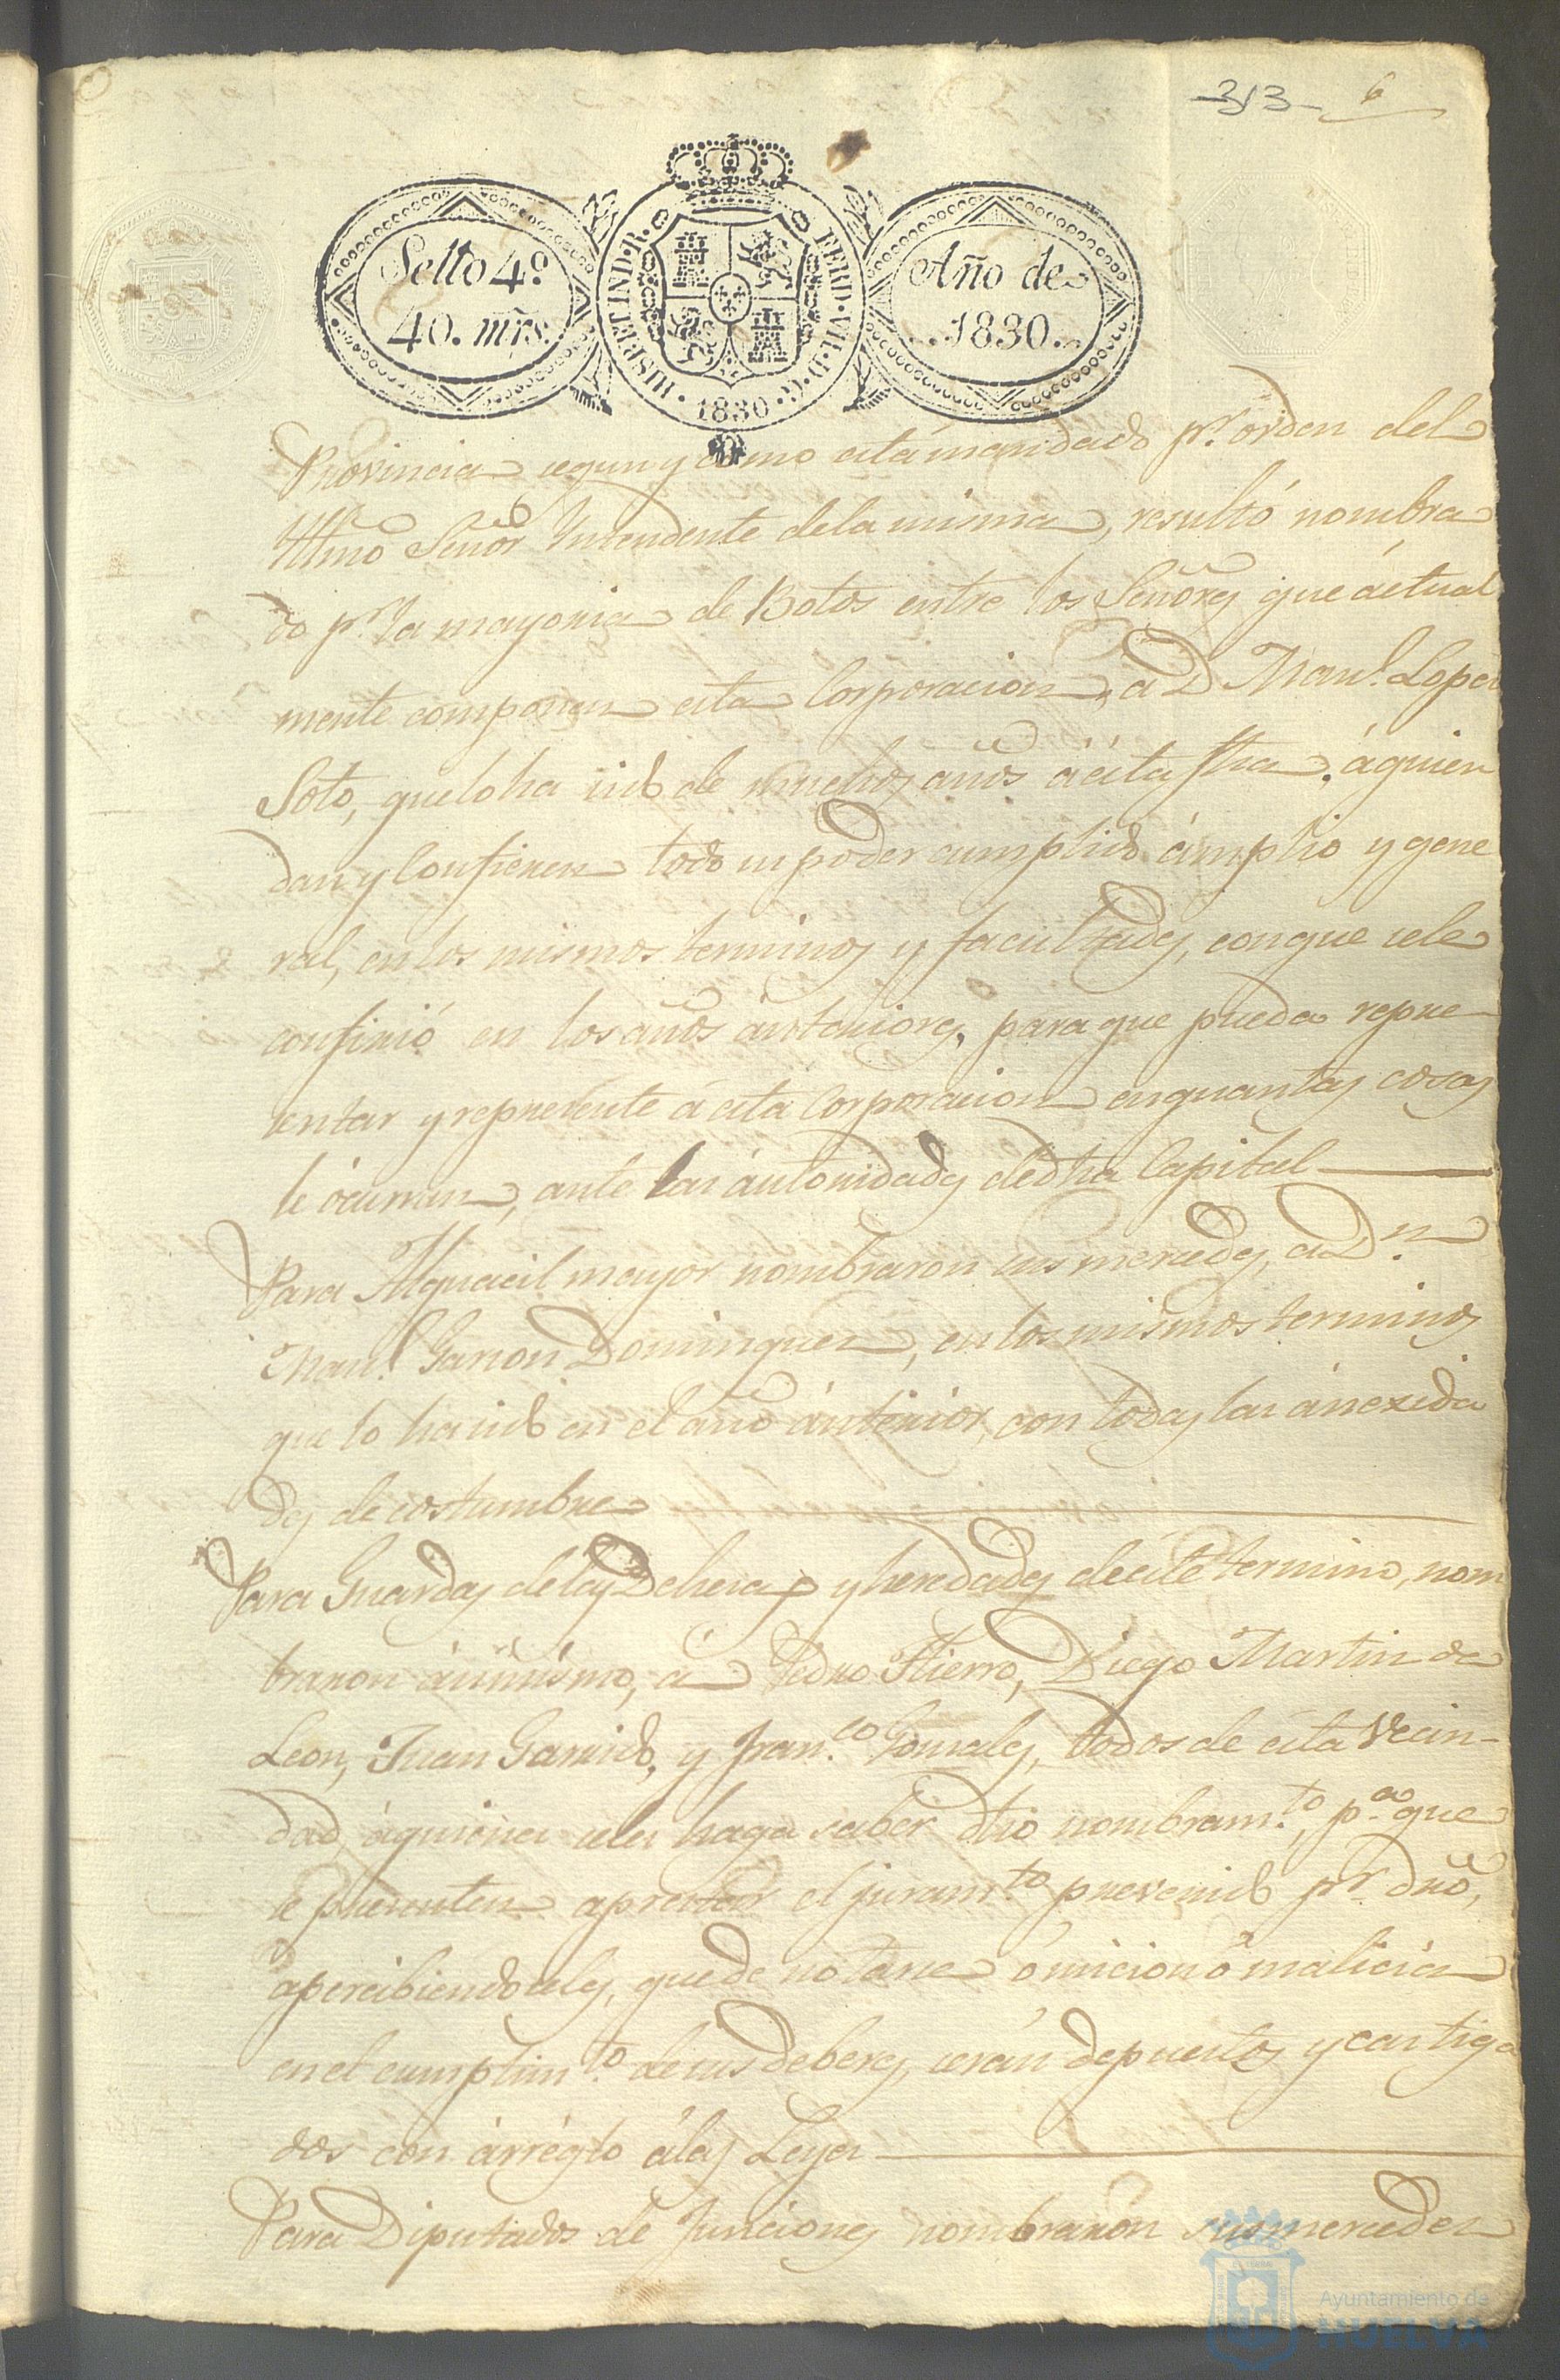 313 6
Sello 4º
40. mrs.
HISP. ET IND. R. FERD. VII. D. G. 1830
Año de
1830
Provincia segun y como está mandado pr. orden del
Yllmo Señor Yntendente dela misma, resultó nombra
do pr. la mayoria de Botos entre los Señores que áctual
mente componen esta Corporacion, a D Manl. Lopez
Soto, quelo ha sido de muchos años áésta fha. áquien
dan y Confieren todo su poder cumplido ámplio y gene
ral, enlos mismos terminos y facultades, conque sele
confirió en los años ánteriores, para que pueda repre-
sentar y represente á esta Corporacion enquantas cosas
le ócurran, ante las áutoridades dedha Capital
Para Alguacil mayor nombraron sus mercedes, a Dn.
Manl. Garzon Dominguez, enlos mismos terminos
que lo ha sido en el año ánterior, con todas las ánexida
des de costumbre
Para Guardas delas Dehesas y heredades deéste termino, nom
braron ásimismo, á Pedro Hierro, Diego Martin de
Leon, Juan Garrido, y Franco. Gonzales, todos de ésta Vecin-
dad, áquienes seles haga saber dho nombramto., pa. que
se presenten aprestar el juramto. prevenido pr. dro,
apercibiendoseles, quede notarse ómision ó malicia
en el cumplimto. desus deberes, serán depuestos y castiga
dos con árreglo álas Leyes
Para Diputados de Funciones nombraron susmercedes
Ayuntamiento de
HUELVA